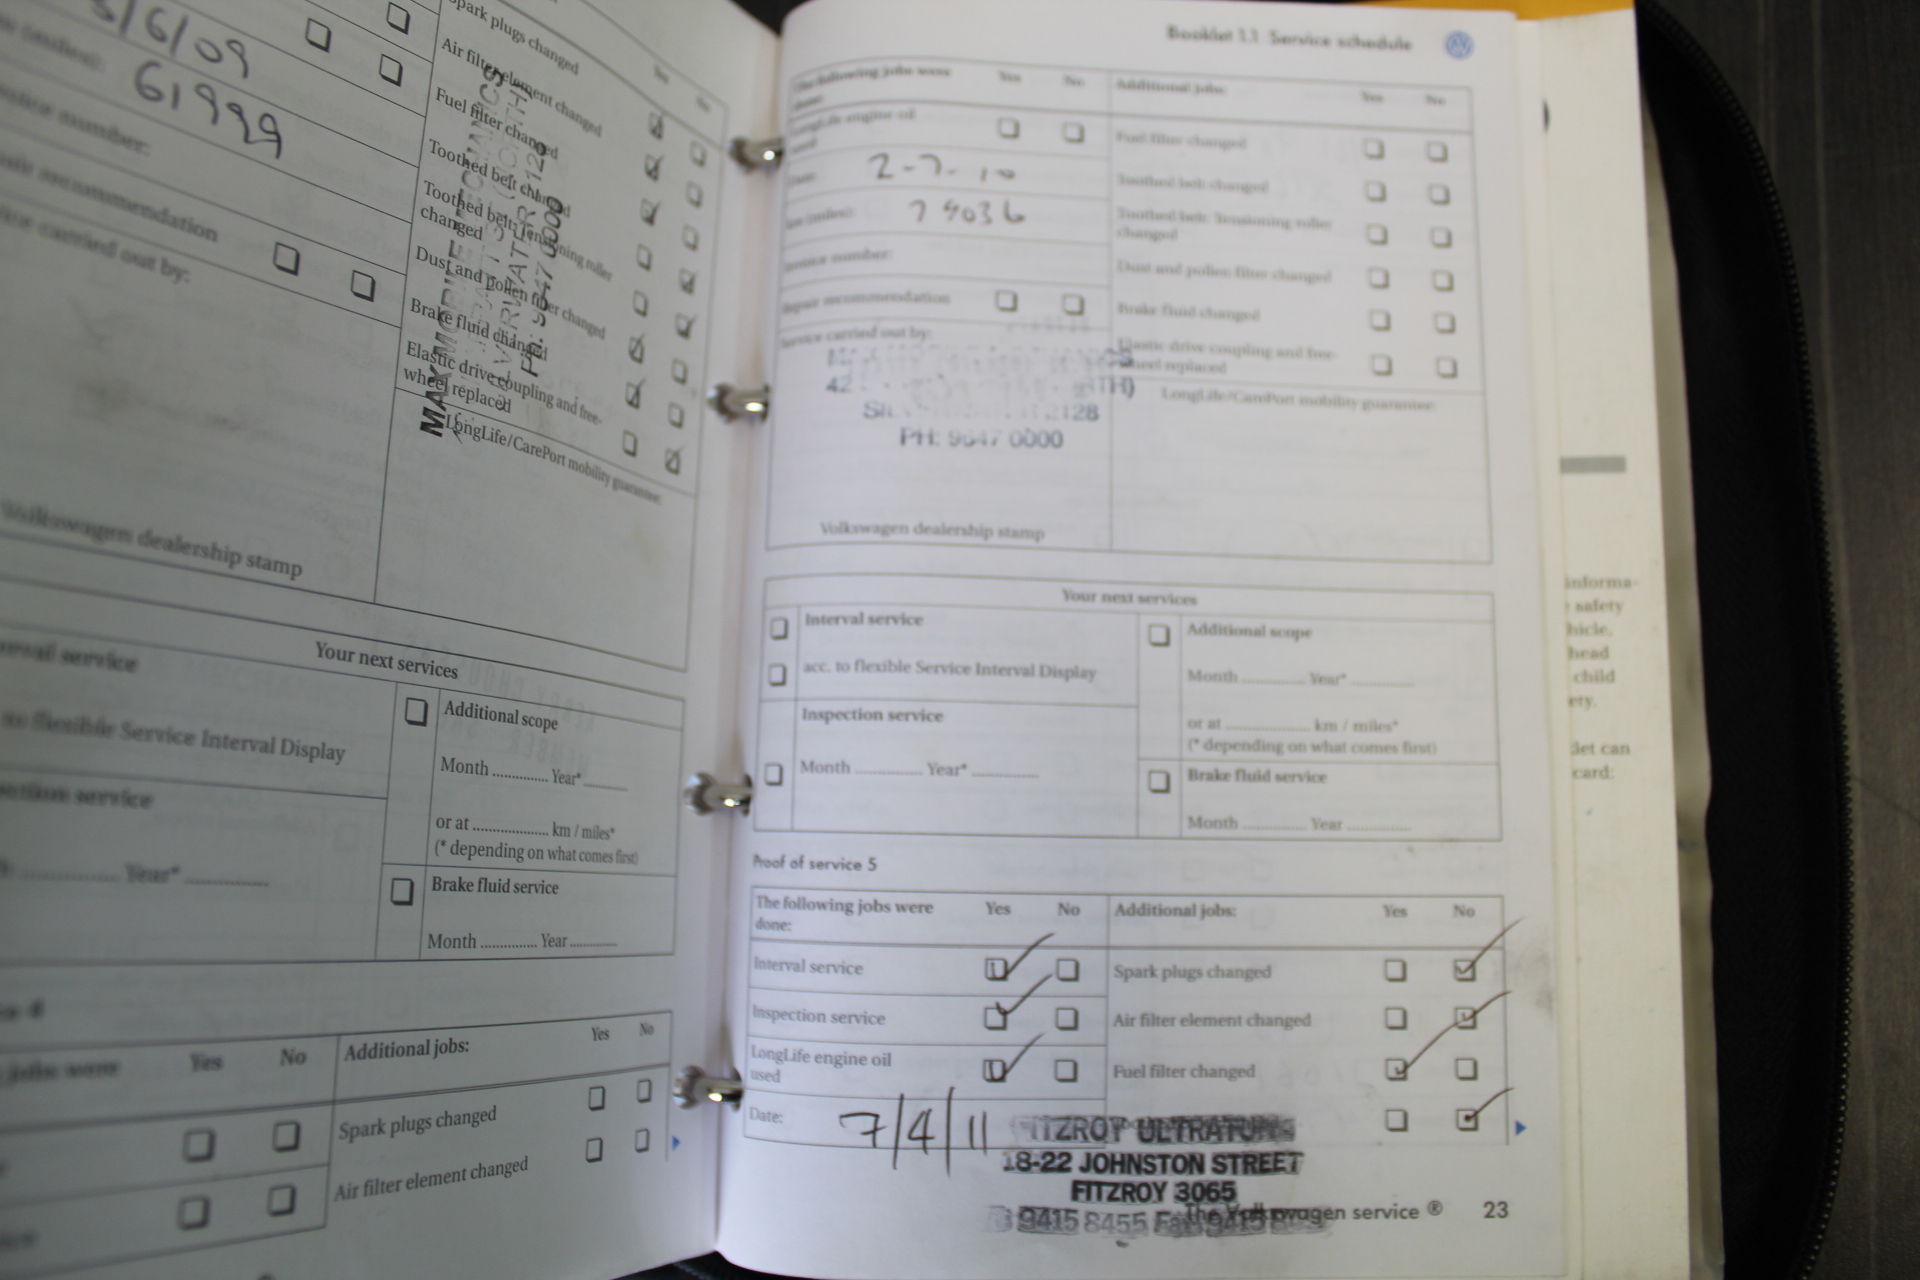 5/6/09
61999
recommendation
carried out by:
Volkswagen dealership stamp
Spark plugs changed
Air filter element changed
Fuel filter changed
Toothed belt changed
Toothed belt: Tensioning roller
changed
Dust and pollen filter changed
Brake fluid changed
Elastic drive coupling and free-
wheel replaced
LongLife/CarePort mobility guarantee:
PH: 9647 0000
Your next services
service
flexible Service Interval Display
service
Year*
Additional scope
Month Year*
or at km / miles*
(* depending on what comes first)
Brake fluid service
Month Year
Yes No Additional jobs: Yes No
Spark plugs changed
Air filter element changed
Booklet 1.1 Service schedule
The following jobs were Yes No Additional jobs: Yes No
done:
LongLife engine oil
used
Fuel filter changed
Date: 2-7-10
Toothed belt changed
km (miles): 74036
Toothed belt: Tensioning roller
changed
Invoice number:
Dust and pollen filter changed
Repair recommendation
Brake fluid changed
Service carried out by:
Elastic drive coupling and free-
wheel replaced
42
2128
PH: 9647 0000
LongLife/CarePort mobility guarantee:
Volkswagen dealership stamp
Your next services
Interval service
acc. to flexible Service Interval Display
Inspection service
Month Year*
Additional scope
Month Year*
or at km / miles*
(* depending on what comes first)
Brake fluid service
Month Year
Proof of service 5
The following jobs were Yes No Additional jobs: Yes No
done:
Interval service Spark plugs changed
Inspection service Air filter element changed
LongLife engine oil
used
Fuel filter changed
Date: 7/4/11
FITZROY ULTRATUNE
18-22 JOHNSTON STREET
FITZROY 3065
9415 8455 Fax 9415
The Volkswagen service ® 23
informa-
safety
hicle.
head
child
ety.
let can
card: